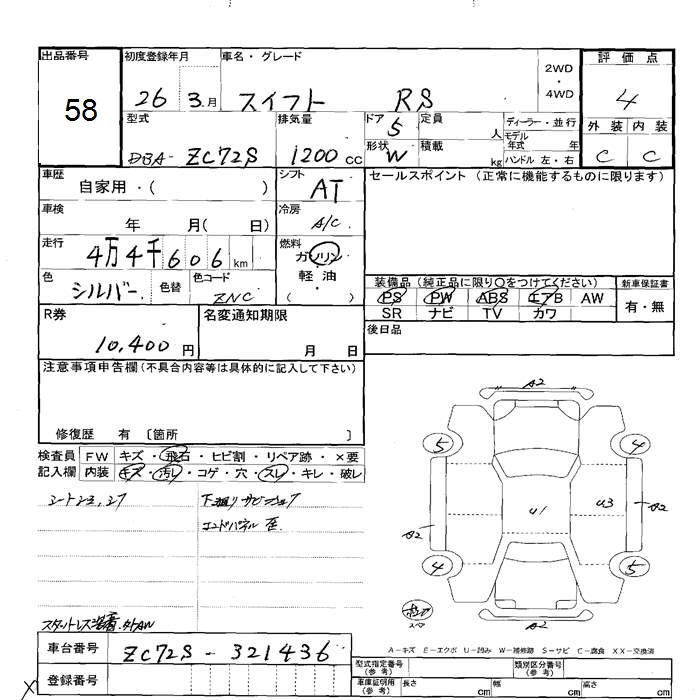 出品番号 初度登録年月 車名・グレード 2WD・4WD 評価点
58 26 3.月 スイフト RS 4
型式 排気量 ドア 5 定員 人 ディーラー・並行 外装 内装
DBA- ZC72S 1200 cc 形状 W 積載 kg モデル年式 年 ハンドル 左・右 C C
車歴 自家用・( ) シフト AT セールスポイント (正常に機能するものに限ります)
車検 年 月( 日) 冷房 A/C
走行 4万4千606 km 燃料 ガソリン・軽油・( )
色 シルバー 色替 色コード ZNC
装備品 (純正品に限り○をつけてください) 新車保証書
PS PW ABS エアB AW 有・無
SR ナビ TV カワ
R券 10,400円 名変通知期限 月 日 後日品
注意事項申告欄(不具合内容等は具体的に記入して下さい)
修復歴 有 〔箇所 〕
検査員 FW キズ・飛石・ヒビ割・リペア跡・×要
記入欄 内装 キズ・汚レ・コゲ・穴・スレ・キレ・破レ
下廻りサビ
エンドパネル 歪
A2
5 4
U1 U3
A2 A2
4 5
A2
スタットレス装着. AW
A-キズ E-エクボ U-凹み W-補修跡 S-サビ C-腐食 XX-交換済
車台番号 ZC72S - 321436
登録番号
型式指定番号(参考) 類別区分番号(参考)
車庫証明用(参考) 長さ cm 幅 cm 高さ cm